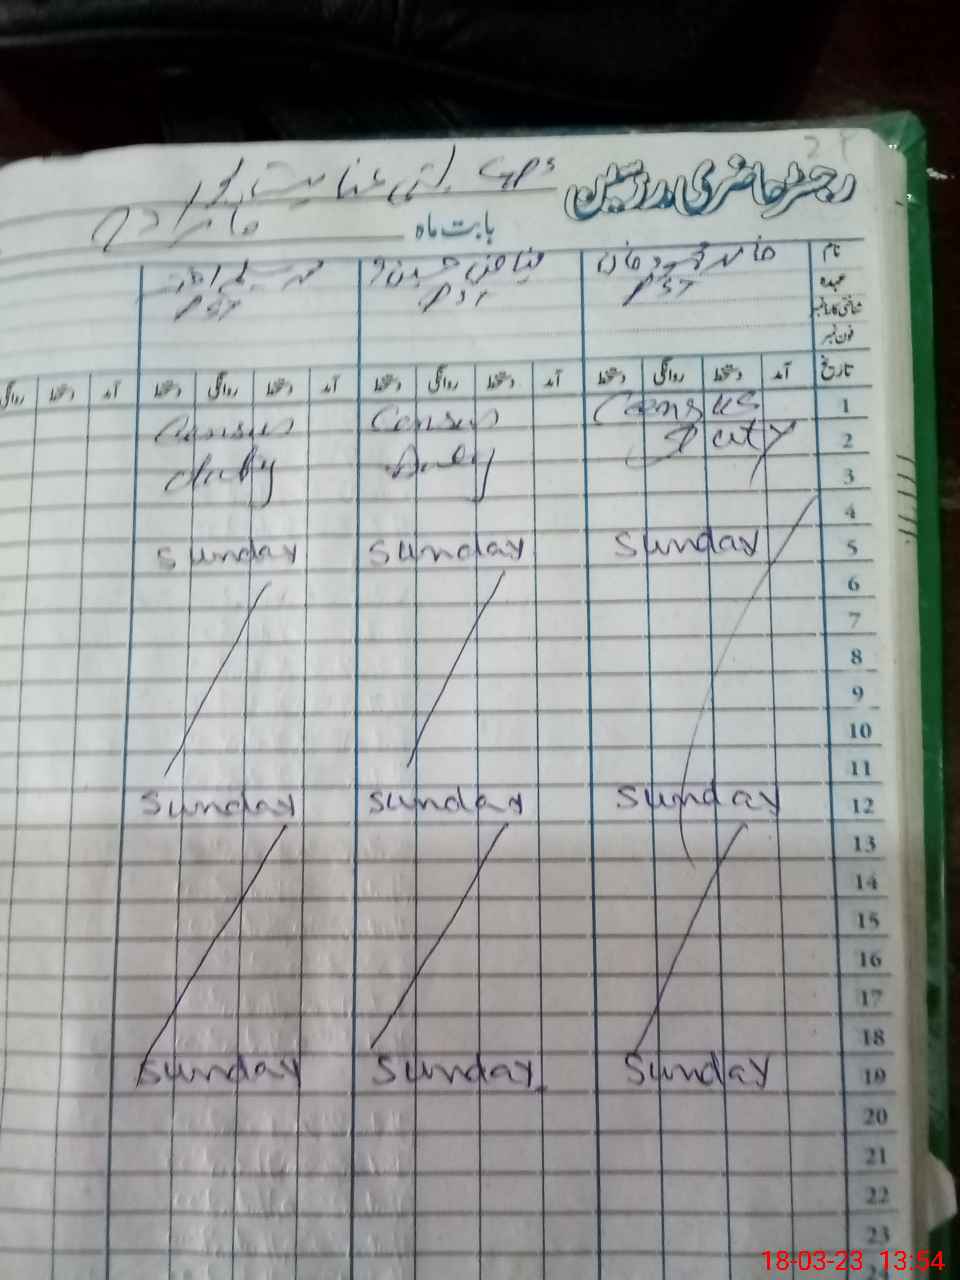 27
رجسٹر حاضری مدرسین GPS
بابت ماہ
نام
عہدہ PST PST PST
شناختی کارڈ نمبر
فون نمبر
تاریخ آمد دستخط روانگی دستخط آمد دستخط روانگی دستخط آمد دستخط روانگی دستخط آمد دستخط روانگی
1 Census Census Census
2 Duty Duty duty
3
4
5 Sunday Sunday Sunday
6
7
8
9
10
11
12 Sunday Sunday Sunday
13
14
15
16
17
18
19 Sunday Sunday Sunday
20
21
22
23
24
18-03-23 13:54